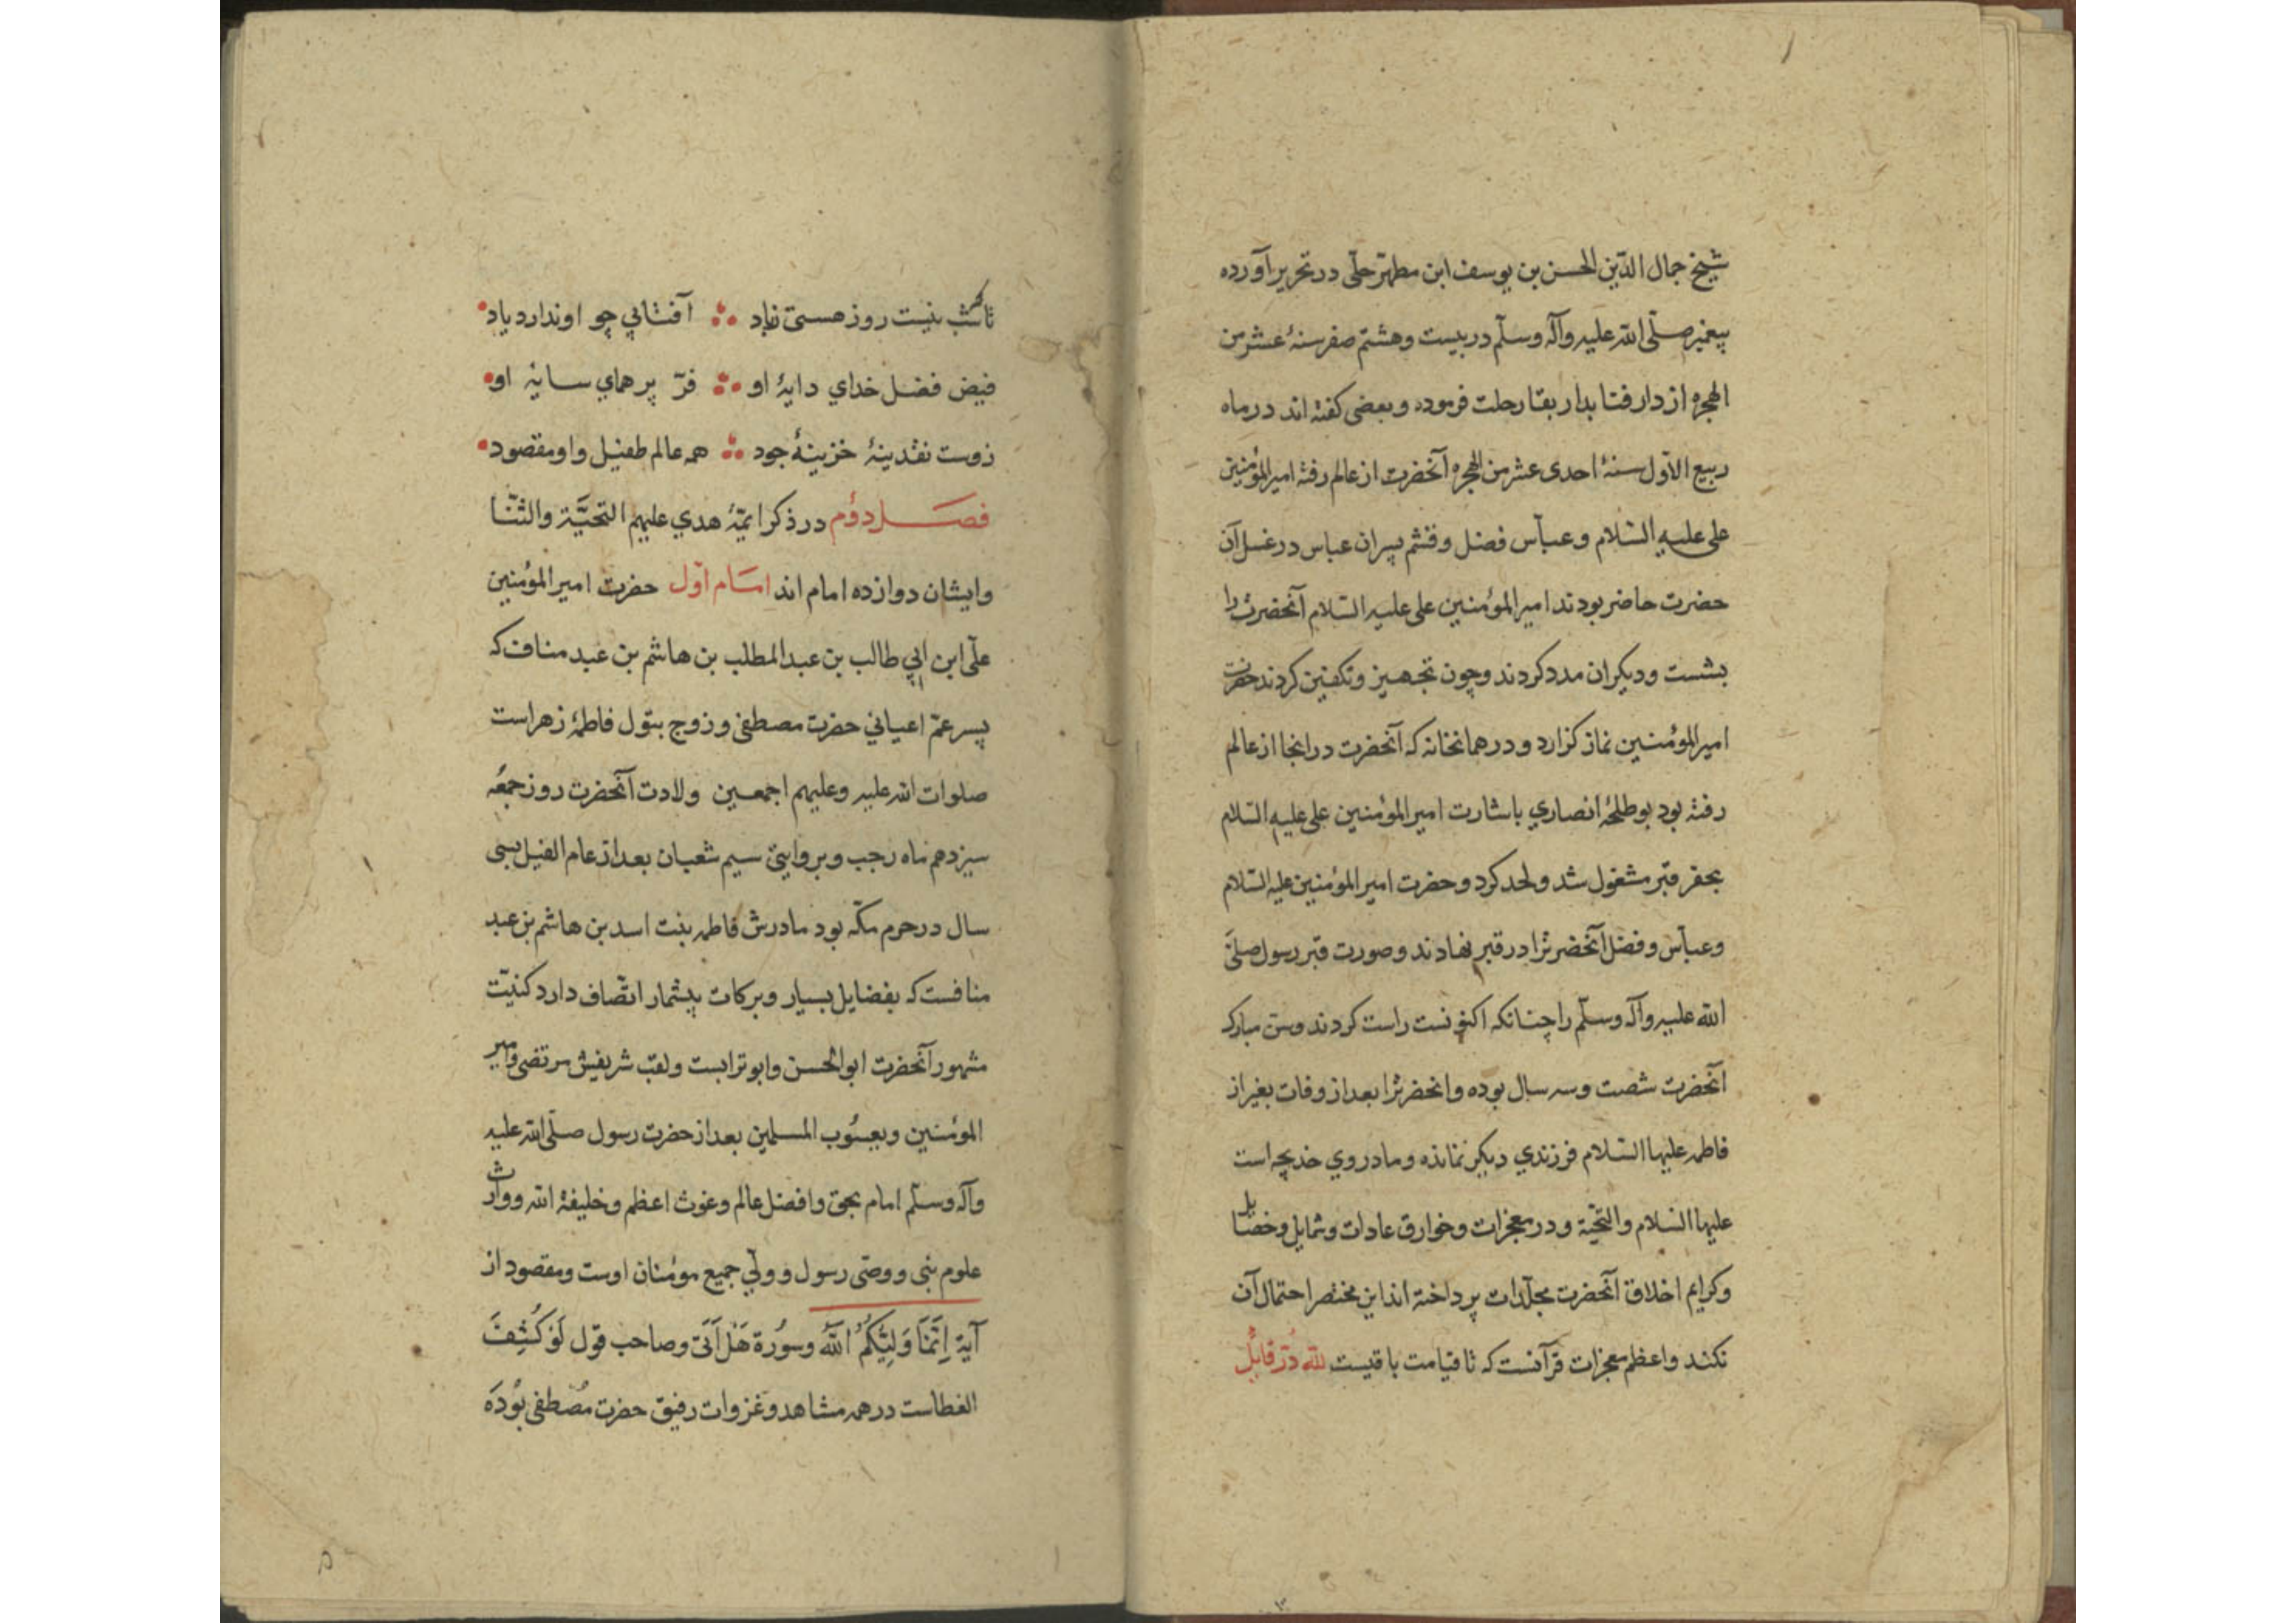 شیخ جمال الدّین الحسن بن یوسف ابن مطهّر حلّی در تحریر آورده
پیغمبر صلّی الله علیه وآله وسلّم در بیست وهشتم صفر سنهٔ عشر من
الهجره از دار فنا بدار بقا رحلت فرموده وبعضی کفته اند در ماه
ربیع الاوّل سنهٔ احدی عشر من الهجره آنحضرت از عالم رفته امیر المؤمنین
علی علیه السّلام وعباس فضل وقثم پسران عباس در غسل آن
حضرت حاضر بودند امیر المؤمنین علی علیه السّلام آنحضرت را
بشست ودیکران مدد کردند وچون تجهیز وتکفین کردند حضرت
امیر المؤمنین نماز کزارد ودر همانخانه که آنحضرت در انجا از عالم
رفته بود بوطلحهٔ انصاري باشارت امیر المؤمنین علی علیه السّلام
بحفر قبر مشغول شد ولحد کرد وحضرت امیر المؤمنین علیه السّلام
وعباس وفضل آنحضرترا در قبر نهادند وصورت قبر رسول صلّی
الله علیه وآله وسلّم را چنانکه اکنونست راست کردند وسن مبارک
آنحضرت شصت وسه سال بوده وانحضرترا بعد از وفات بغیر از
فاطمه علیها السّلام فرزندي دیکر نمانده ومادر وي خدیجه است
علیها السّلام والتحیّة ودر معجزات وخوارق عادات وشمایل وخصایل
وکرایم اخلاق آنحضرت مجلّدات پرداخته اند این مختصر احتمال آن
نکند واعظم معجزات قرآنست که تا قیامت باقیست لله درّ قایل
تا شب نیست روز هستی زاد آفتابي چو او ندارد یاد
فیض فضل خداي دایهٔ او فرّ پر هماي سایهٔ او
زوست نقدینهٔ خزینهٔ جود همه عالم طفیل واو مقصود
فصل دوّم در ذکر ایمّهٔ هدي علیهم التحیّة والثنا
وایشان دوازده امام اند امام اوّل حضرت امیر المؤمنین
علی ابن ابي طالب بن عبد المطلب بن هاشم بن عبد مناف که
پسر عمّ اعیاني حضرت مصطفی وزوج بتول فاطمهٔ زهراست
صلوات الله علیه وعلیهم اجمعین ولادت آنحضرت روز جمعه
سیزدهم ماه رجب وبروایتی سیم شعبان بعد از عام الفیل بسی
سال در حرم مکّه بود مادرش فاطمه بنت اسد بن هاشم بن عبد
منافست که بفضایل بسیار وبرکات بیشمار اتّصاف دارد کنیّت
مشهور آنحضرت ابو الحسن وابو ترابست ولقب شریفش مرتضی وامیر
المؤمنین ویعسُوب المسلمین بعد از حضرت رسول صلّی الله علیه
وآله وسلّم امام بحق وافضل عالم وغوث اعظم وخلیفة الله ووارث
علوم نبی ووصی رسول وولي جمیع مؤمنان اوست ومقصود از
آیة اِنَّمَا وَلِیُّکُمُ اللّهُ وسُورة هَلْ اَتَی وصاحب قول لَوْ کُشِفَ
الغطاست در همه مشاهد وغزوات رفیق حضرت مُصْطفی بُودَه